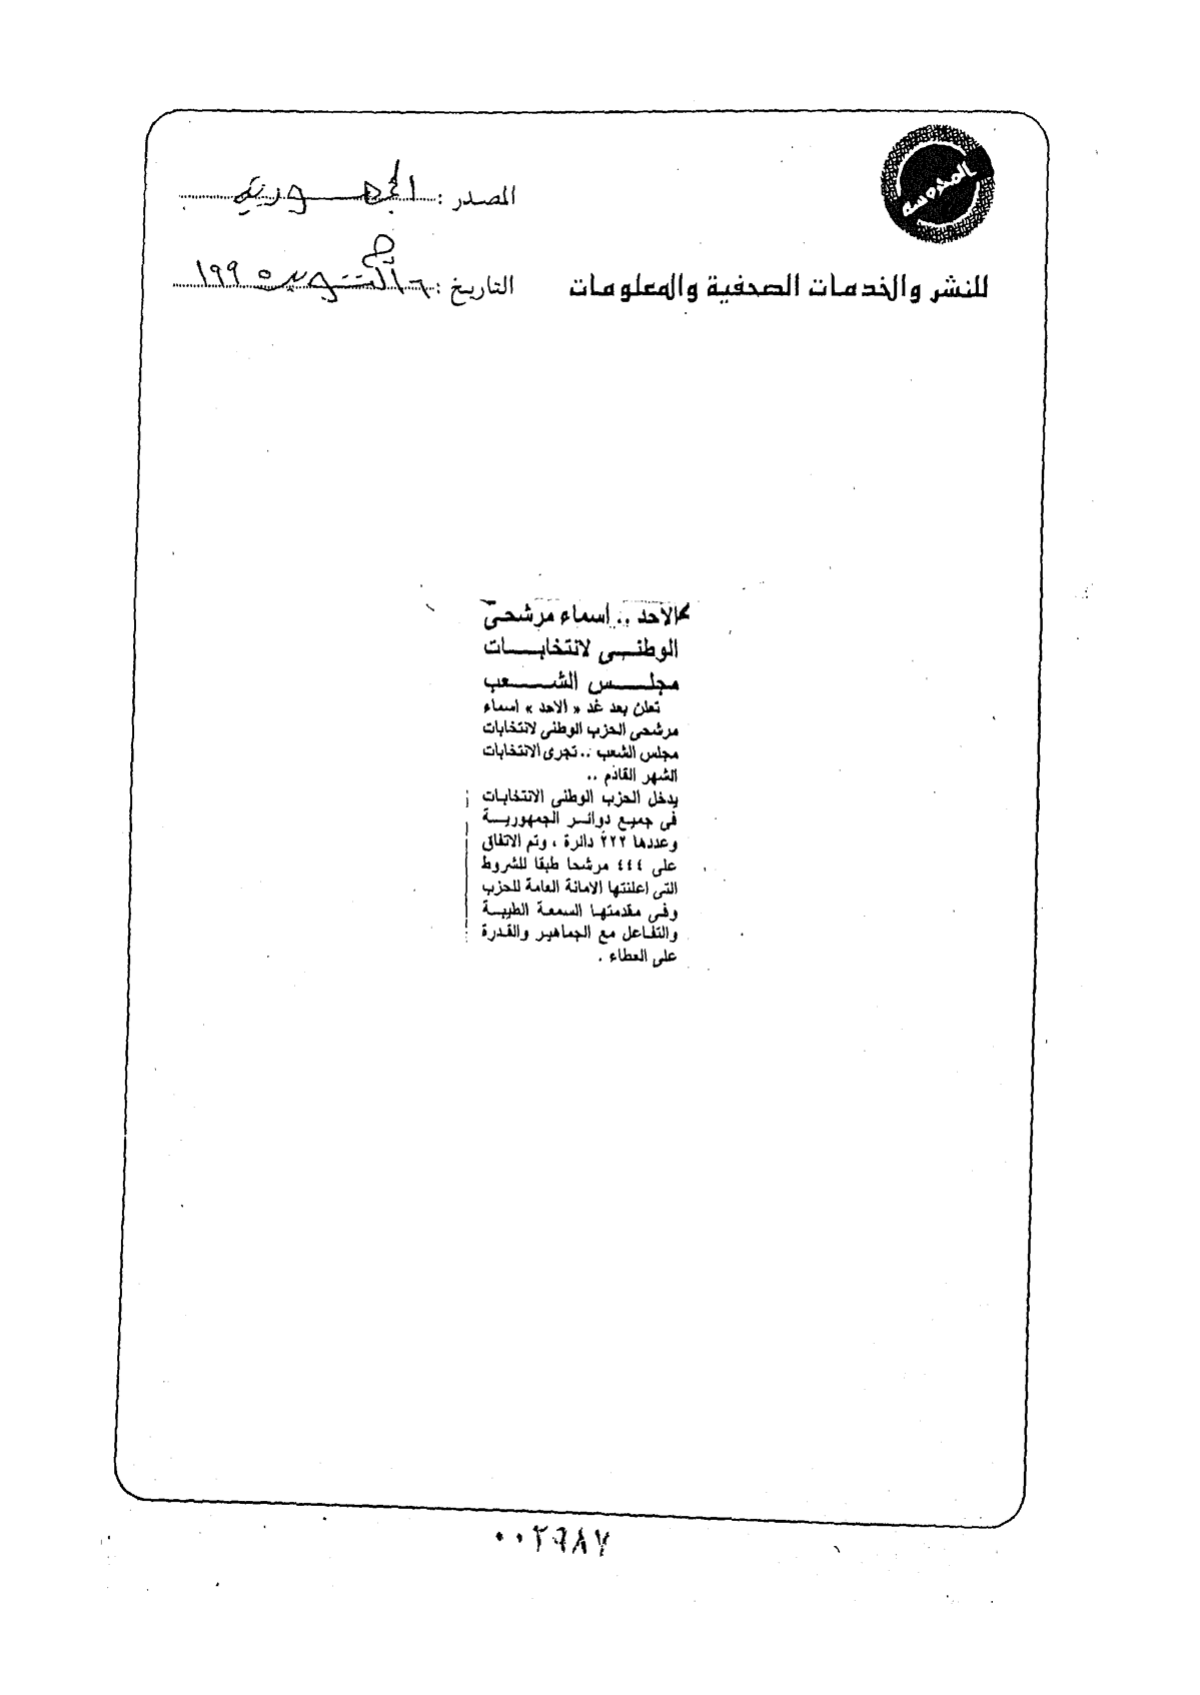 المصدر : الجمهورية
للنشر والخدمات الصحفية والمعلومات
التاريخ : أكتوبر ١٩٩٥
الاحد .. أسماء مرشحى
الوطنى لانتخابات
مجلس الشعب
تعلن بعد غد « الاحد » اسماء
مرشحى الحزب الوطنى لانتخابات
مجلس الشعب .. تجرى الانتخابات
الشهر القادم ..
يدخل الحزب الوطنى الانتخابات
فى جميع دوائر الجمهورية
وعددها ٢٢٢ دائرة ، وتم الاتفاق
على ٤٤٤ مرشحا طبقا للشروط
التى اعلنتها الامانة العامة للحزب
وفى مقدمتها السمعة الطيبة
والتفاعل مع الجماهير والقدرة
على العطاء .
٠٠٢٩٨٧